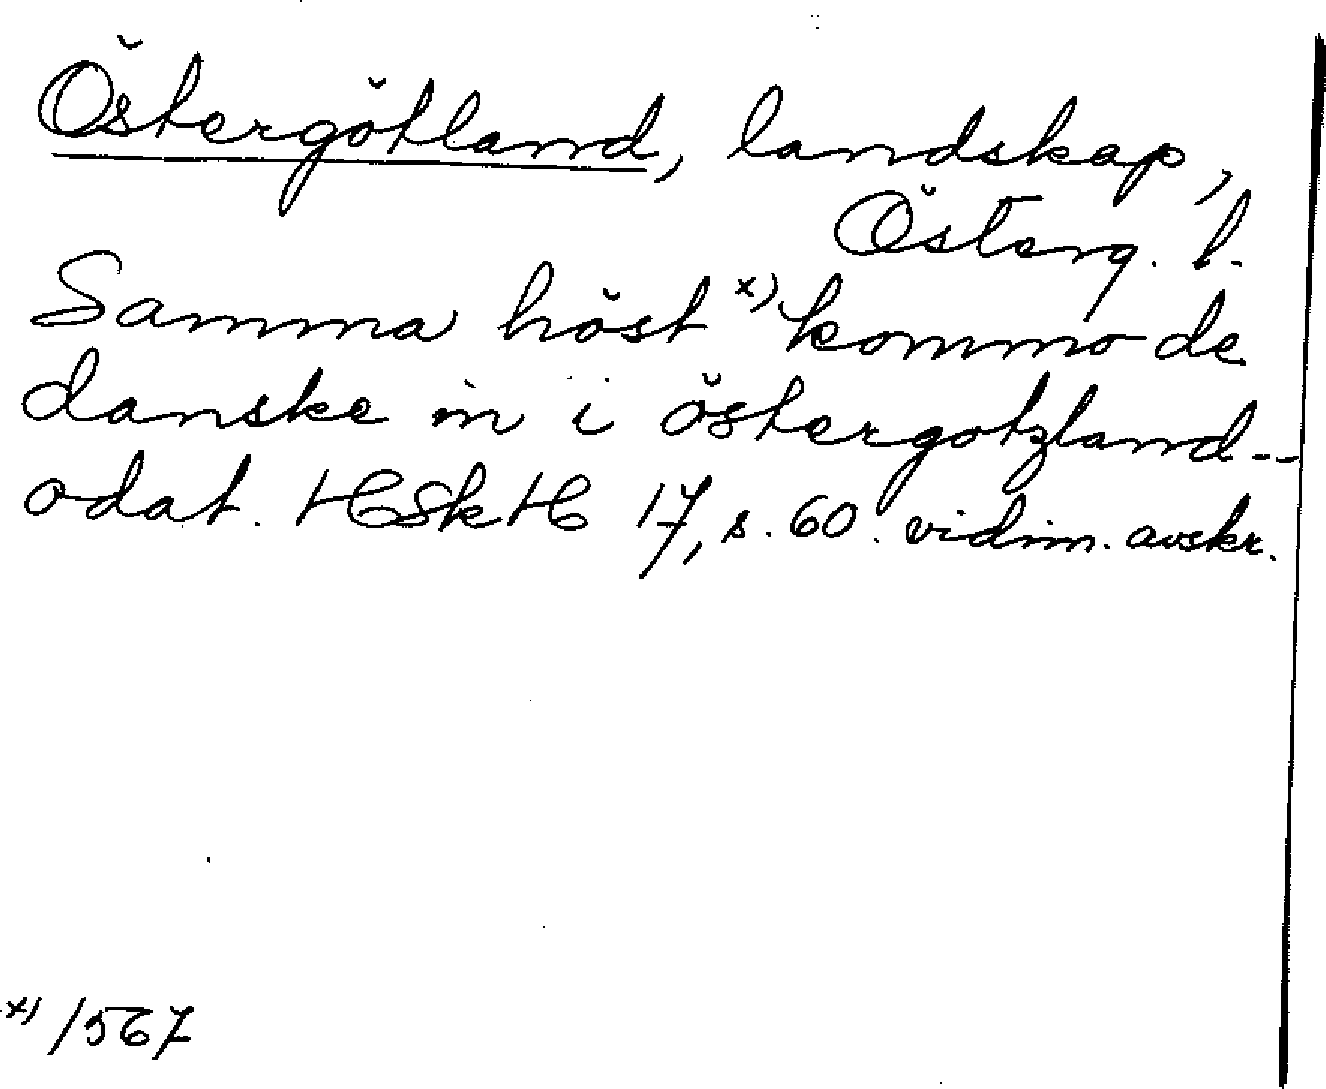 Östergötland, landskap,
Österg. l.
Samma höst x) kommo de
danske in i östergotzland--
odat. HSkH 17, s. 60. vidim. avskr.
x) 1567